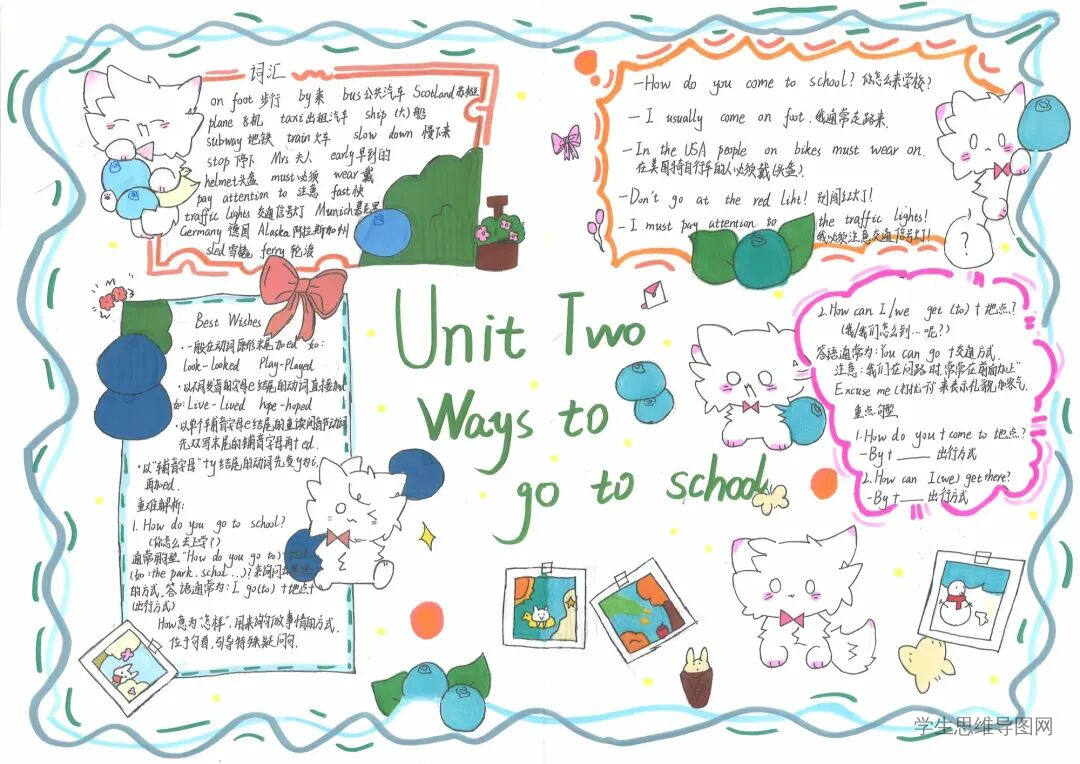 词汇
on foot 步行 by 乘 bus 公共汽车 Scotland 苏格兰
plane 飞机 taxi 出租汽车 ship (大)船
subway 地铁 train 火车 slow down 慢下来
stop 停下 Mrs 夫人 early 早到的
helmet 头盔 must 必须 wear 戴
pay attention to 注意 fast 快
traffic lights 交通信号灯 Munich 慕尼黑
Germany 德国 Alaska 阿拉斯加州
sled 雪橇 ferry 轮渡
-How do you come to school? 你怎么来学校?
- I usually come on foot. 我通常走路来.
- In the USA people on bikes must wear on.
在美国骑自行车的人必须戴(头盔).
-Don't go at the red liht! 别闯红灯!
- I must pay attention to the traffic lights!
我必须注意交通信号灯!
?
Unit Two
Ways to
go to school
Best Wishes
·一般在动词原形末尾加ed. 如:
look-looked Play-Played
·以不发音的字母e结尾的动词直接加d
如:Live-Lived hope-hoped
·以单个辅音字母e结尾的重读闭音节动词
先双写末尾的辅音字母再+ed.
·以"辅音字母"+y结尾的动词先变y为i,
再加ed.
重难解析:
1. How do you go to school?
(你怎么去上学?)
通常用句型"How do you go to)+地点
(如:the park. schol...)?来询问
的方式. 答语通常为: I go(to)+地点+
出行方式)
How意为"怎样", 用来询问故事情的方式.
位于句首,引导特殊疑问句.
2. How can I/we get (to)+地点?
(我/我们怎么到…呢?)
答语通常为: You can go +交通方式.
注意:我们在问路时,常常在前面加上"
Excuse me (打扰一下)"来表示礼貌和客气.
重点句型
1. How do you + come to 地点?
-By+____出行方式
2. How can I(we) get there?
-By+____出行方式
学生思维导图网